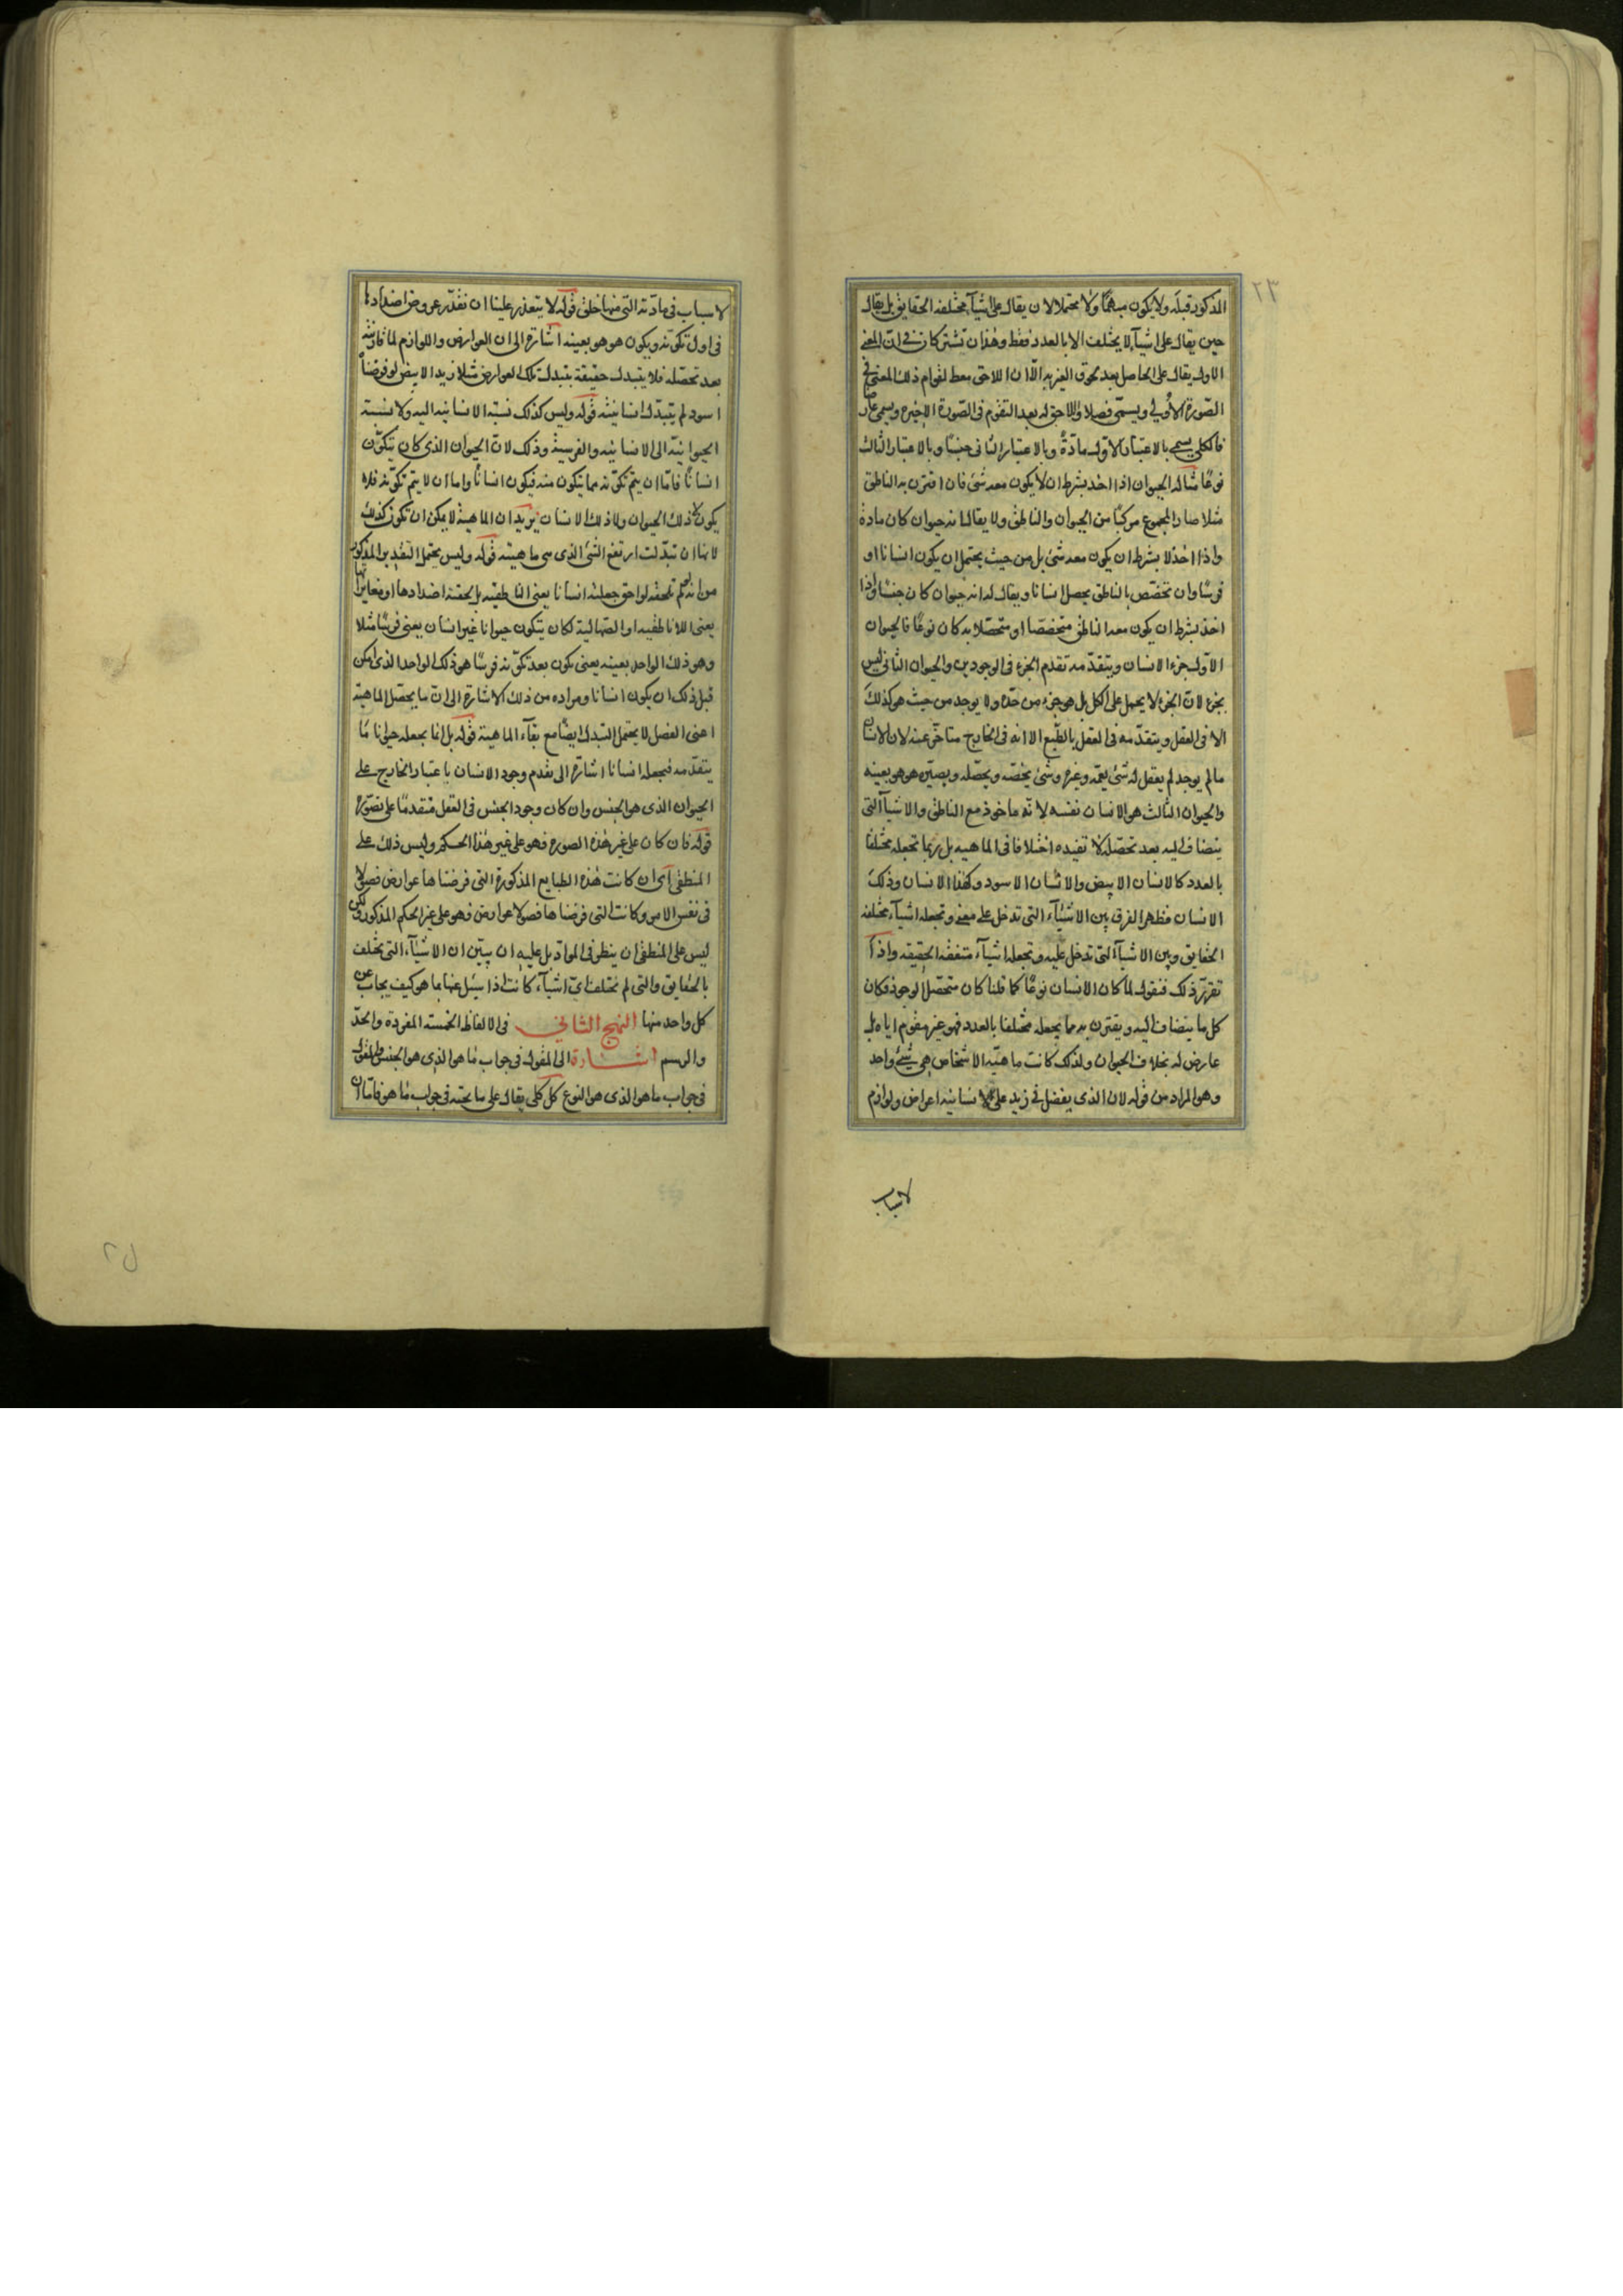 ٢٣
المذكور قبله ولا يكون مبهما ولا محتملا لان يقال على اشياء مختلفة الحقايق بل يقال
حين يقال على اشياء لا يختلف الا بالعدد فقط وهذان تشتركان في ان المعنى
الاول يقال على الحاصل بعد لحوق الغير به الا ان اللاحق معط لقوام ذلك المعنى في
الصورة الاولى ويسمى فصلا واللاحق له بعد التقوم في الصورة الاخيرة ويسمى عارضا
فالكلي يسمى بالاعتبار الاول مادة وبالاعتبار الثاني جنسا وبالاعتبار الثالث
نوعا مثاله الحيوان اذا اخذ بشرط ان لا يكون معه شئ فان اقترن به الناطق
مثلا صار المجموع مركبا من الحيوان والناطق ولا يقال انه حيوان كان مادة
واذا اخذ لا بشرط ان يكون معه شئ بل من حيث يحتمل ان يكون انسانا او
فرسا وان تخصص بالناطق يحصل انسانا ويقال له انه حيوان كان جنسا واذا
اخذ بشرط ان يكون معه الناطق متخصصا او متحصلا به كان نوعا فالحيوان
الاول جزء الانسان ويتقدمه تقدم الجزء في الوجودين والحيوان الثاني ليس
بجزء لان الجزء لا يحمل على الكل بل هو جزء من حده ولا يوجد من حيث هو كذلك
الا في العقل ويتقدمه في العقل بالطبع الا انه في الخارج متاخر عنه لان الانسان
مالم يوجد لم يعقل له شئ يعمه وغيره وشئ يخصه ويحصله ويصيره هو هو بعينه
والحيوان الثالث هو الانسان نفسه لانه ماخوذ مع الناطق والاشياء التي
يضاف اليه بعد تحصله لا تفيده اختلافا في الماهية بل ربما تجعله مختلفا
بالعدد كالانسان الابيض والانسان الاسود وكهذا الانسان وذلك
الانسان فظهر الفرق بين الاشياء التي تدخل على معنى وتجعله اشياء مختلفة
الحقايق وبين الاشياء التي تدخل عليه وتجعله اشياء متفقة الحقيقة واذا
تقرر ذلك فنقول لما كان الانسان نوعا كما قلنا كان متحصل الوجود فكان
كل ما ينضاف اليه ويقترن به مما يجعله مختلفا بالعدد فهو غير مقوم اياه بل
عارض له بخلاف الحيوان ولذلك كانت ماهية الاشخاص هي شئ واحد
وهو المراد من قوله لان الذي يفضل في زيد على الانسانية اعراض ولوازم
لاسباب
لاسباب في مادته التي منها خلق قوله لا يتعذر علينا ان نقدر عروض اضدادها
في اول تكونه ويكون هو هو بعينه اشارة الى ان العوارض واللوازم لما قارنته
بعد تحصله فلا يتبدل حقيقة بتبدل تلك العوارض مثلا زيد الابيض لو فرضناه
اسود لم يتبدل انسانيته قوله وليس كذلك نسبة الانسانية اليه ولا نسبة
الحيوانية الى الانسانية والفرسية وذلك لان الحيوان الذي كان يتكون
انسانا فاما ان يتم تكونه مما يتكون منه فيكون انسانا واما ان لا يتم تكونه فلا
يكون لا ذلك الحيوان ولا ذلك الانسان يريد ان الماهية لا يمكن ان تكون كذلك
لانها ان تبدلت ارتفع الشئ الذي هي ماهيته قوله وليس يحتمل التقدير المذكور
من انه لم تلحقه لواحق جعلته انسانا يعني الناطقية بل لحقته اضدادها او مغايراتها
يعني اللاناطقية او الصهالية لكان يتكون حيوانا غير انسان يعني فرسا مثلا
وهو ذلك الواحد بعينه يعني يكون بعد تكونه فرسا هو ذلك الواحد الذي امكن
قبل ذلك ان يكون انسانا ومراده من ذلك الاشارة الى ان ما يحصل الماهية
اعني الفصل لا يحتمل التبدل ايضا مع بقاء الماهية قوله بل انما يجعله حيوانا ما
يتقدمه فيجعله انسانا اشارة الى تقدم وجود الانسان باعتبار الخارج على
الحيوان الذي هو الجنس وان كان وجود الجنس في العقل متقدما على تصوره
قوله فان كان على غير هذه الصورة فهو على غير هذا الحكم وليس ذلك على
المنطقي اى ان كانت هذه الطبايع المذكورة التي فرضناها عوارض فصولا
في نفس الامر وكانت التي فرضناها فصولا عوارض فهو على غير الحكم المذكور ولكن
ليس على المنطقي ان ينظر في المواد بل عليه ان يبين ان الاشياء التي تختلف
بالحقايق والتي لم تختلف اي اشياء كانت اذا سئل عنها بما هو كيف يجاب عن
كل واحد منها النهج الثاني في الالفاظ الخمسة المفردة والحد
والرسم اشارة الى المقول في جواب ما هو الذي هو الجنس والمقول
في جواب ما هو الذي هو النوع كل كلي يقال على ما تحته في جواب ما هو فاما ان
٢٥